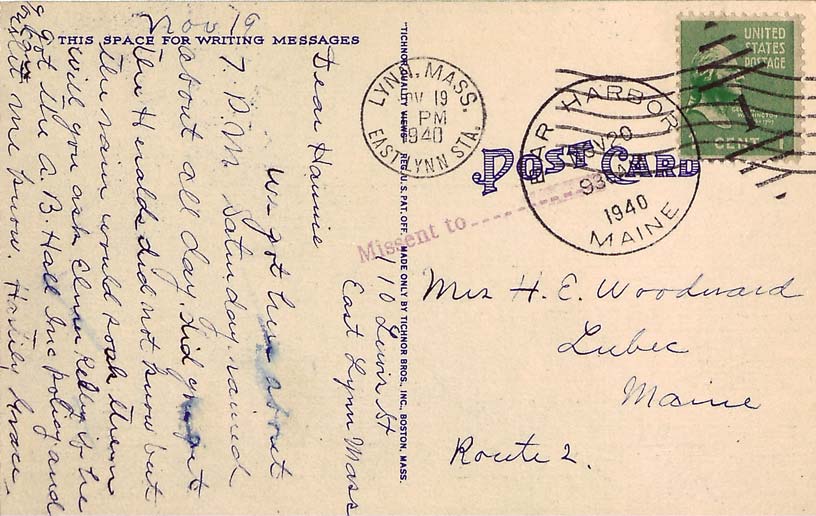 Nov 19
THIS SPACE FOR WRITING MESSAGES
110 Lewis St
East Lynn Mass
Dear Hannie
We got here about
7. P.M. Saturday rained
about all day, did you get
the Heralds did not know but
the rain would soak them
will you ask Elmer if he
got the A. B. Hall Inc policy and
let me know. Hastily Grace
"TICHNOR QUALITY VIEWS" REG. U.S. PAT. OFF. MADE ONLY BY TICHNOR BROS., INC., BOSTON, MASS.
LYNN, MASS.
NOV 19
PM
1940
EAST LYNN STA.
POST CARD
BAR HARBOR
NOV 20
1940
MAINE
UNITED
STATES
POSTAGE
WASHINGTON
1
CENT 1
Missent to
Mrs H. E. Woodward
Lubec
Maine
Route 2.